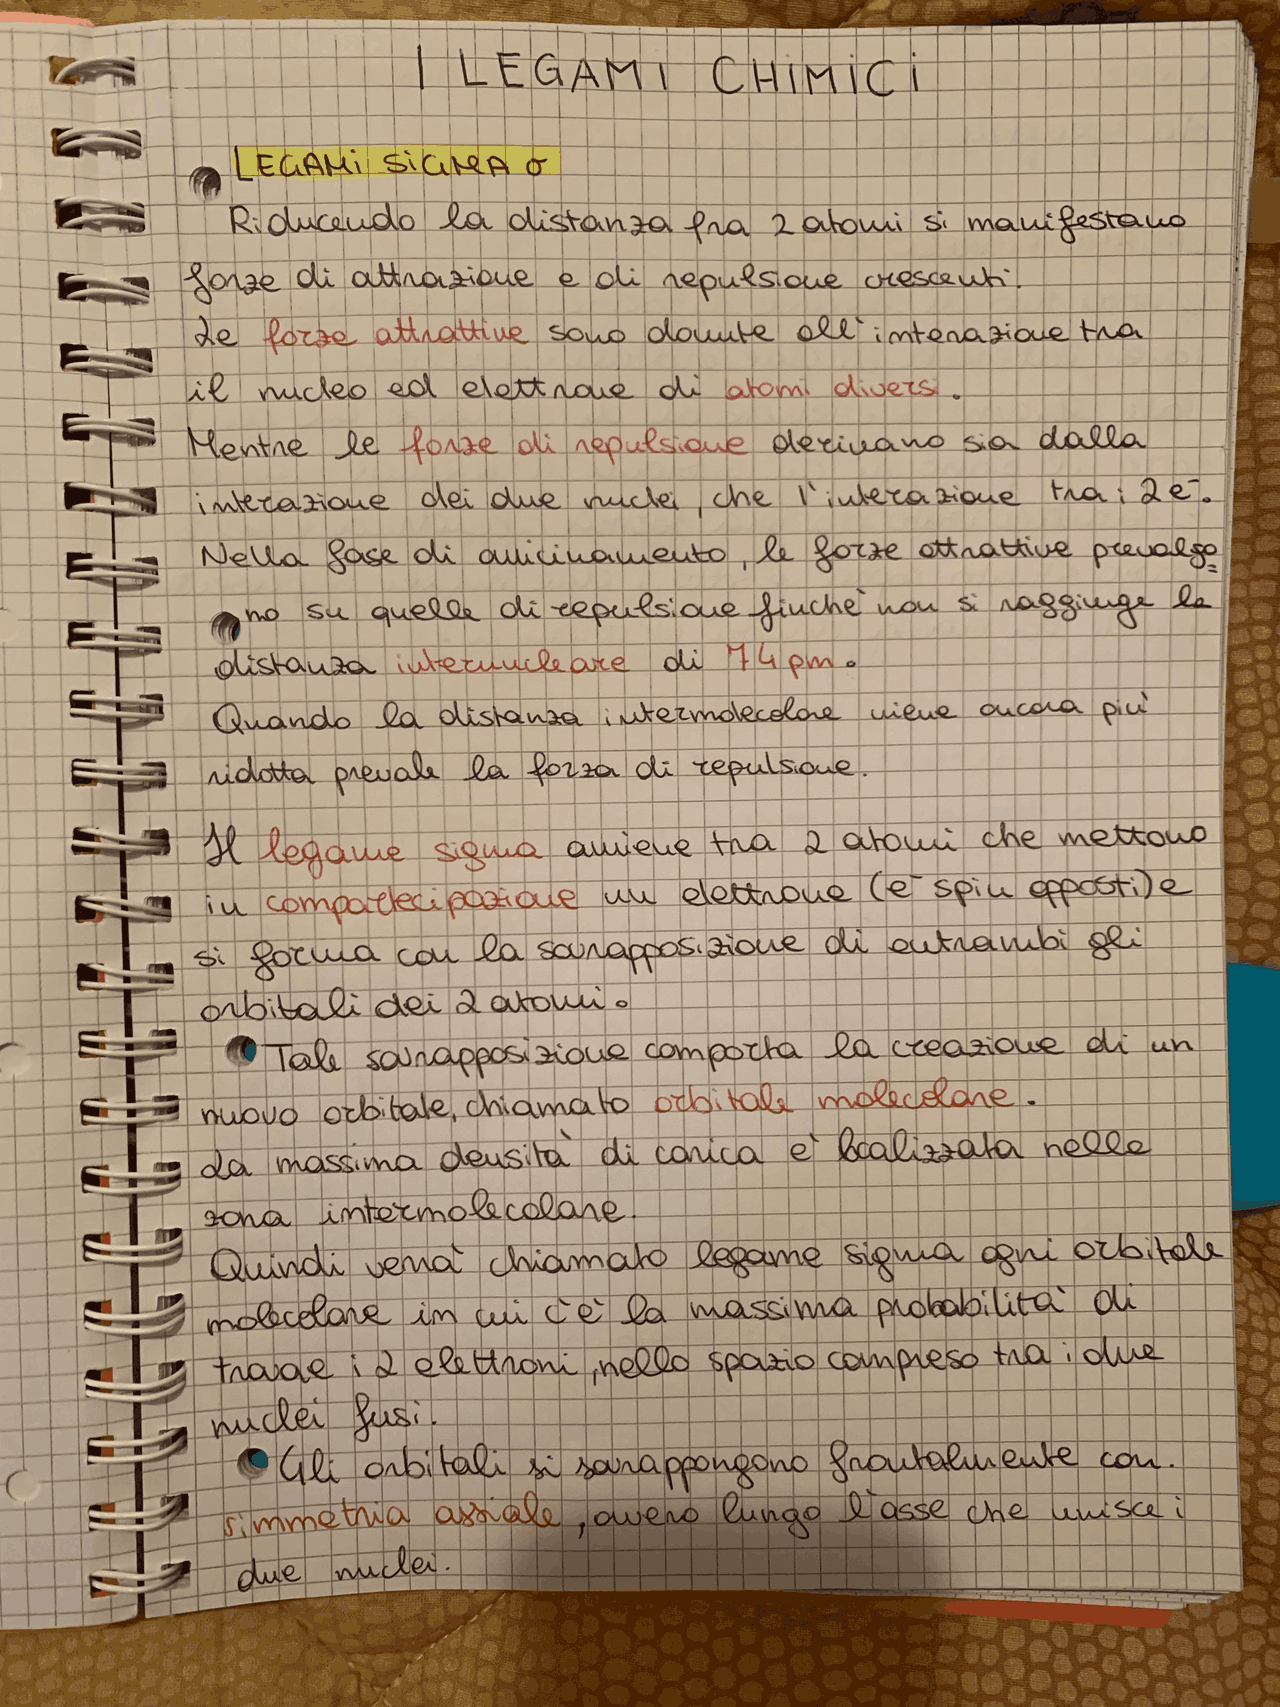 I LEGAMI CHIMICI
LEGAMI SIGMA σ
Riducendo la distanza fra 2 atomi si manifestano
forze di attrazione e di repulsione crescenti.
Le forze attrattive sono dovute all'interazione tra
il nucleo ed elettrone di atomi diversi.
Mentre le forze di repulsione derivano sia dalla
interazione dei due nuclei, che l'interazione tra i 2e⁻.
Nella fase di avvicinamento, le forze attrattive prevalgo=
no su quelle di repulsione finchè non si raggiunge la
distanza internucleare di 74 pm.
Quando la distanza intermolecolare viene ancora più
ridotta prevale la forza di repulsione.
Il legame sigma avviene tra 2 atomi che mettono
in compartecipazione un elettrone (e⁻ spin opposti) e
si forma con la sovrapposizione di entrambi gli
orbitali dei 2 atomi.
Tale sovrapposizione comporta la creazione di un
nuovo orbitale, chiamato orbitale molecolare.
La massima densità di carica è localizzata nella
zona intermolecolare.
Quindi verrà chiamato legame sigma ogni orbitale
molecolare in cui c'è la massima probabilità di
trovare i 2 elettroni, nello spazio compreso tra i due
nuclei fusi.
Gli orbitali si sovrappongono frontalmente con
simmetria assiale, ovvero lungo l'asse che unisce i
due nuclei.